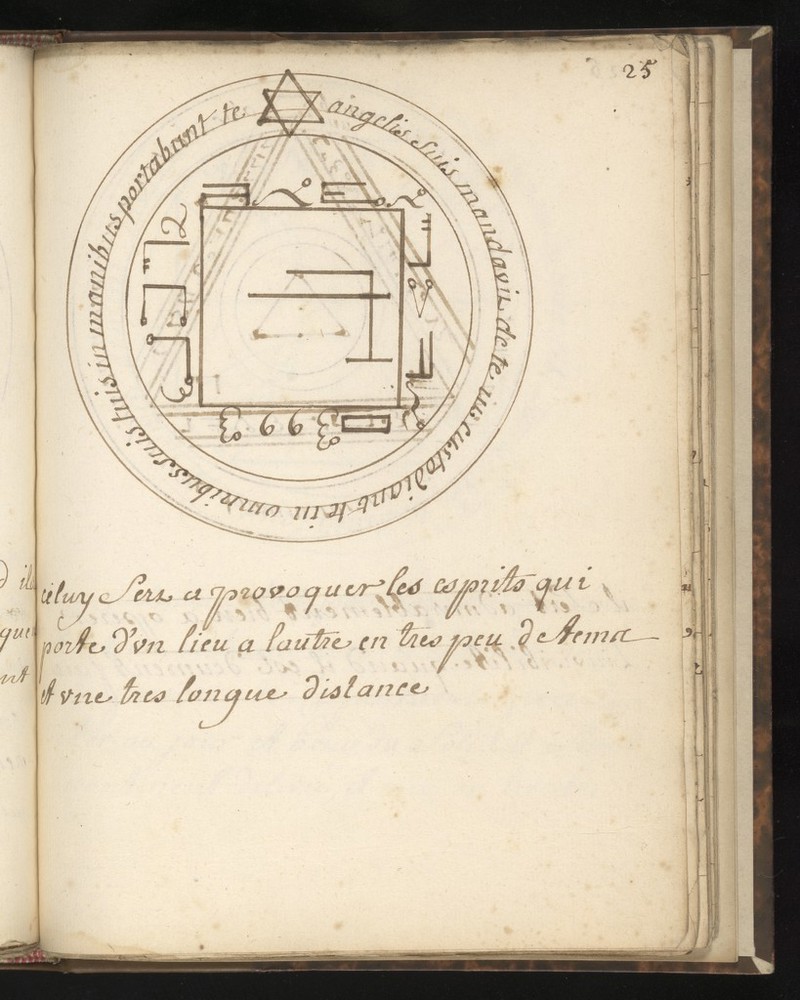 25
angelis suis mandavit de te ut custodiant te in omnibus suis tuis in manibus portabunt te
celuy Sert a provoquer les esprits qui
porte d'vn lieu a lautre en tres peu de
et vne tres longue distance